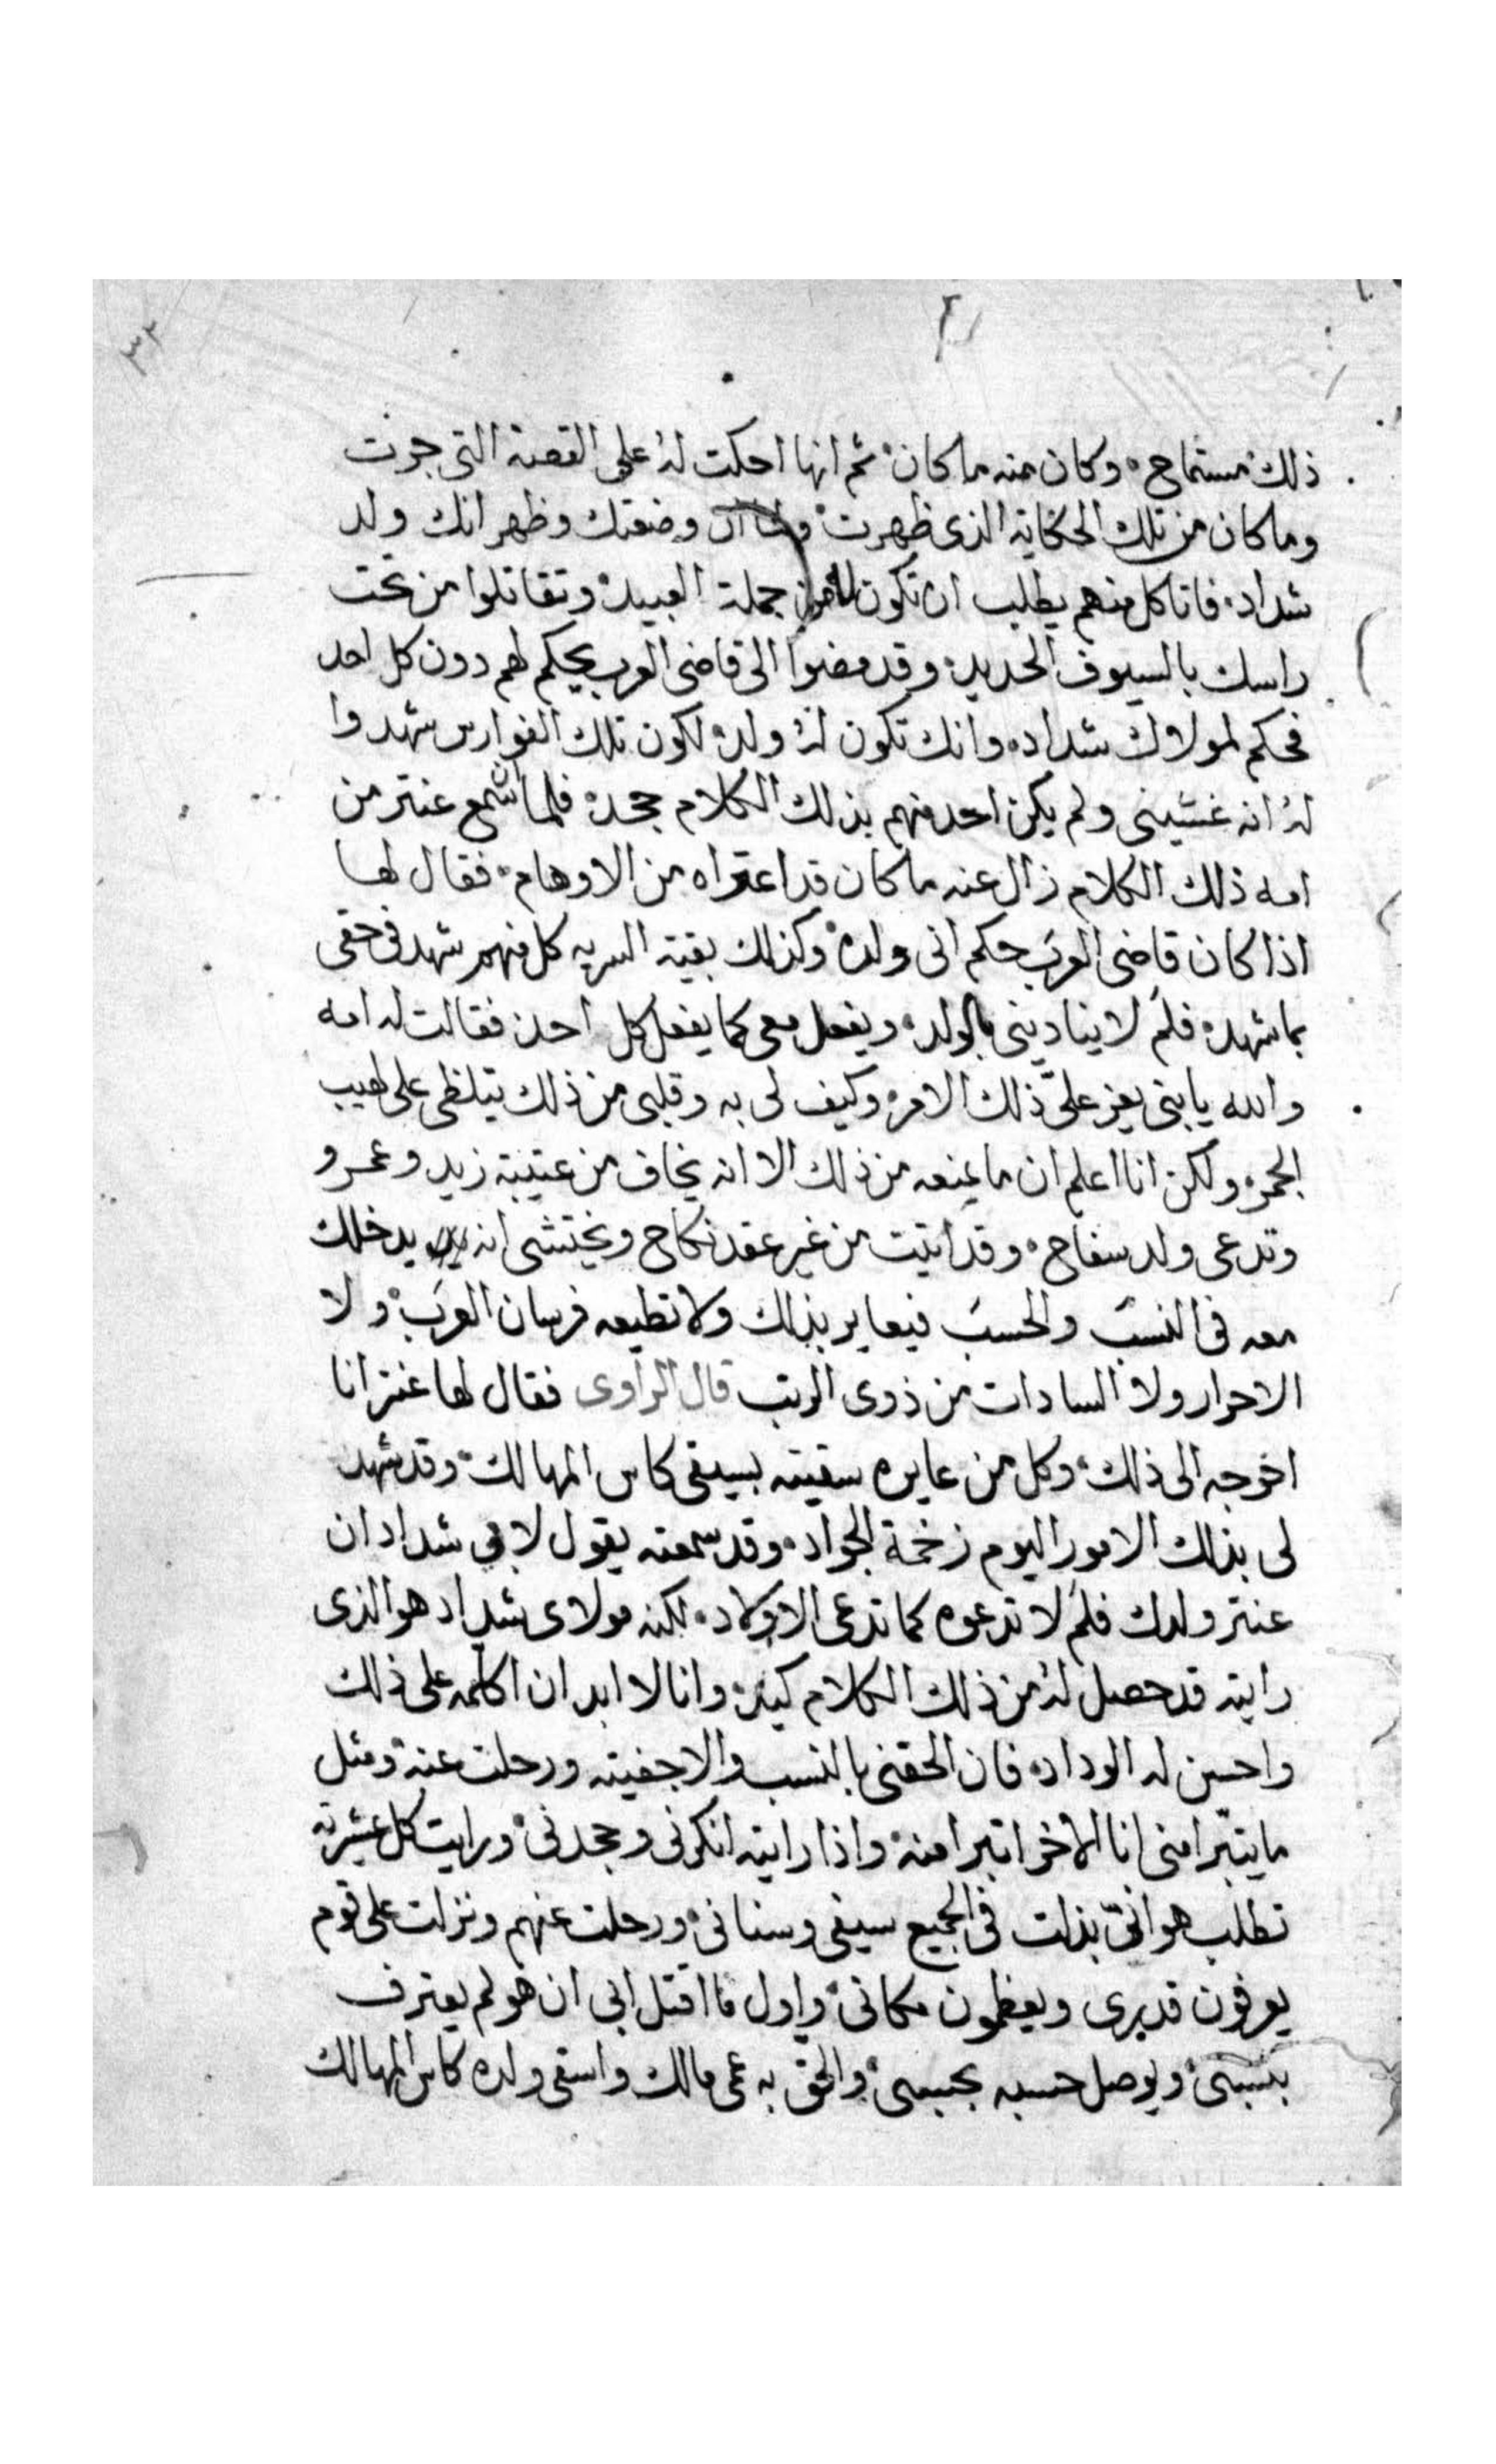 ٣٣
ذلك مستماح وكان منه ما كان ثم انها احكت له على القصة التى جرت
وما كان من تلك الحكاية الذى ظهرت ولما ان وضعتك وظهر انك ولد
شداد فاتا كل منهم يطلب ان تكون له من جملة العبيد وتقاتلوا من تحت
راسك بالسيوف الحديد وقد مضوا الى قاضى العرب يحكم لهم دون كل احد
فحكم لمولاك شداد وانك تكون له ولد لكون تلك الفوارس شهدوا
له انه غشينى ولم يكن احد منهم بذلك الكلام جحد فلما ان سمع عنتر من
امه ذلك الكلام زال عنه ما كان قد اعتراه من الاوهام فقال لها
اذا كان قاضى العرب حكم انى ولده وكذلك بقية السريه كل منهم شهد فى حقى
بما شهد فلم لا ينادينى بالولد ويفعل معى كما يفعل كل احد فقالت له امه
والله يا بنى يعز علىّ ذلك الامر وكيف لى به وقلبى من ذلك يتلظى على لهيب
الجمر ولكن انا اعلم ان ما يمنعه من ذلك الا انه يخاف من عتيبة زيد وعمرو
وتدعى ولد سفاح وقد اتيت من غير عقد نكاح ويختشى انه يدخلك
معه فى النسب والحسب فيعاير بذلك ولا تطيعه فرسان العرب ولا
الاحرار ولا السادات من ذوى الرتب قال الراوى فقال لها عنتر انا
اخوجه الى ذلك وكل من عايره سقيته بسيفى كاس المهالك وقد شهد
لى بذلك الامور اليوم زخمة الجواد وقد سمعته يقول لابى شداد ان
عنتر ولدك فلم لا تدعوه كما تدعى الاولاد لكنه مولاى شداد هو الذى
رايته قد حصل له من ذلك الكلام كيد وانا لا ابد ان اكلمه على ذلك
واحسن له الوداد فان الحقنى بالنسب والا جفيته ورحلت عنه ومثل
ما يتبرا منى انا الاخر اتبرا منه واذا رايته انكرنى وجحدنى ورايت كل عشيرته
تطلب هوانىّ بذلت فى الجميع سيفى وسنانى ورحلت عنهم ونزلت على قوم
يعرفون قدرى ويعظمون مكانى واول ما اقتل ابى ان هو لم يعترف
بنسبى ويوصل حسبه بحسبى والحق به عمى مالك واسقى ولده كاس المهالك